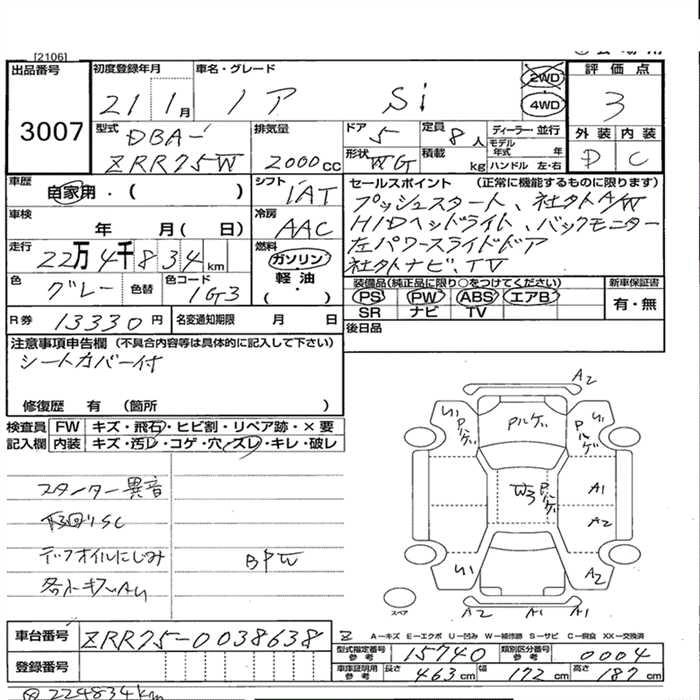 [2106]
出品番号 初度登録年月 車名・グレード 2WD 4WD 評価点
3007 21 1月 ノア Si 3
型式 DBA- 排気量 ドア 5 定員 8人 ディーラー・並行 外装 内装
ZRR75W 2000cc 形状 WG 積載 kg モデル年式 年 ハンドル 左・右 D C
車歴 自家用・( ) シフト IAT セールスポイント (正常に機能するものに限ります)
プッシュスタート、社外A/W
車検 年 月( 日) 冷房 AAC HIDヘッドライト、バックモニター
走行 22万4千834km 燃料 ガソリン 軽油 ・( ) 左パワースライドドア
社外ナビ、TV
色 グレー 色替 色コード 1G3 装備品(純正品に限り○をつけてください) 新車保証書
PS PW ABS エアB 有・無
SR ナビ TV
R券 13330円 名変通知期限 月 日 後日品
注意事項申告欄 (不具合内容等は具体的に記入して下さい)
シートカバー付
修復歴 有 (箇所 )
検査員 FW キズ・飛石・ヒビ割・リペア跡・×要
記入欄 内装 キズ・汚レ・コゲ・穴・スレ・キレ・破レ
スターター異音
下回りSC
デフオイルにじみ BPW
各トキズAU
A2
U1 Pルゲ Pルゲ Pルゲ U1
W3 Pルゲ A1
A2
U1 A2
スペア A2 A1 A1
車台番号 ZRR75-0038638 A−キズ E−エクボ U−凹み W−補修跡 S−サビ C−腐食 XX−交換済
型式指定番号 参考 15740 類別区分番号 参考 0004
登録番号 車庫証明用 参考 長さ 463cm 幅 172cm 高さ 187cm
224834km